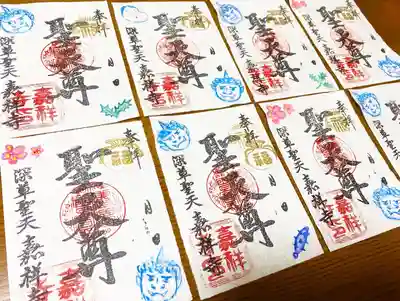 奉拝
聖天尊
月 日
深草聖天 嘉祥寺
奉拝
聖天尊
月 日
深草聖天 嘉祥寺
奉拝
聖天尊
月 日
深草聖天 嘉祥寺
奉拝
聖天尊
月 日
深草聖天 嘉祥寺
奉拝
聖天尊
月 日
深草聖天 嘉祥寺
奉拝
聖天尊
月 日
深草聖天 嘉祥寺
聖天尊
深草聖天 嘉祥寺